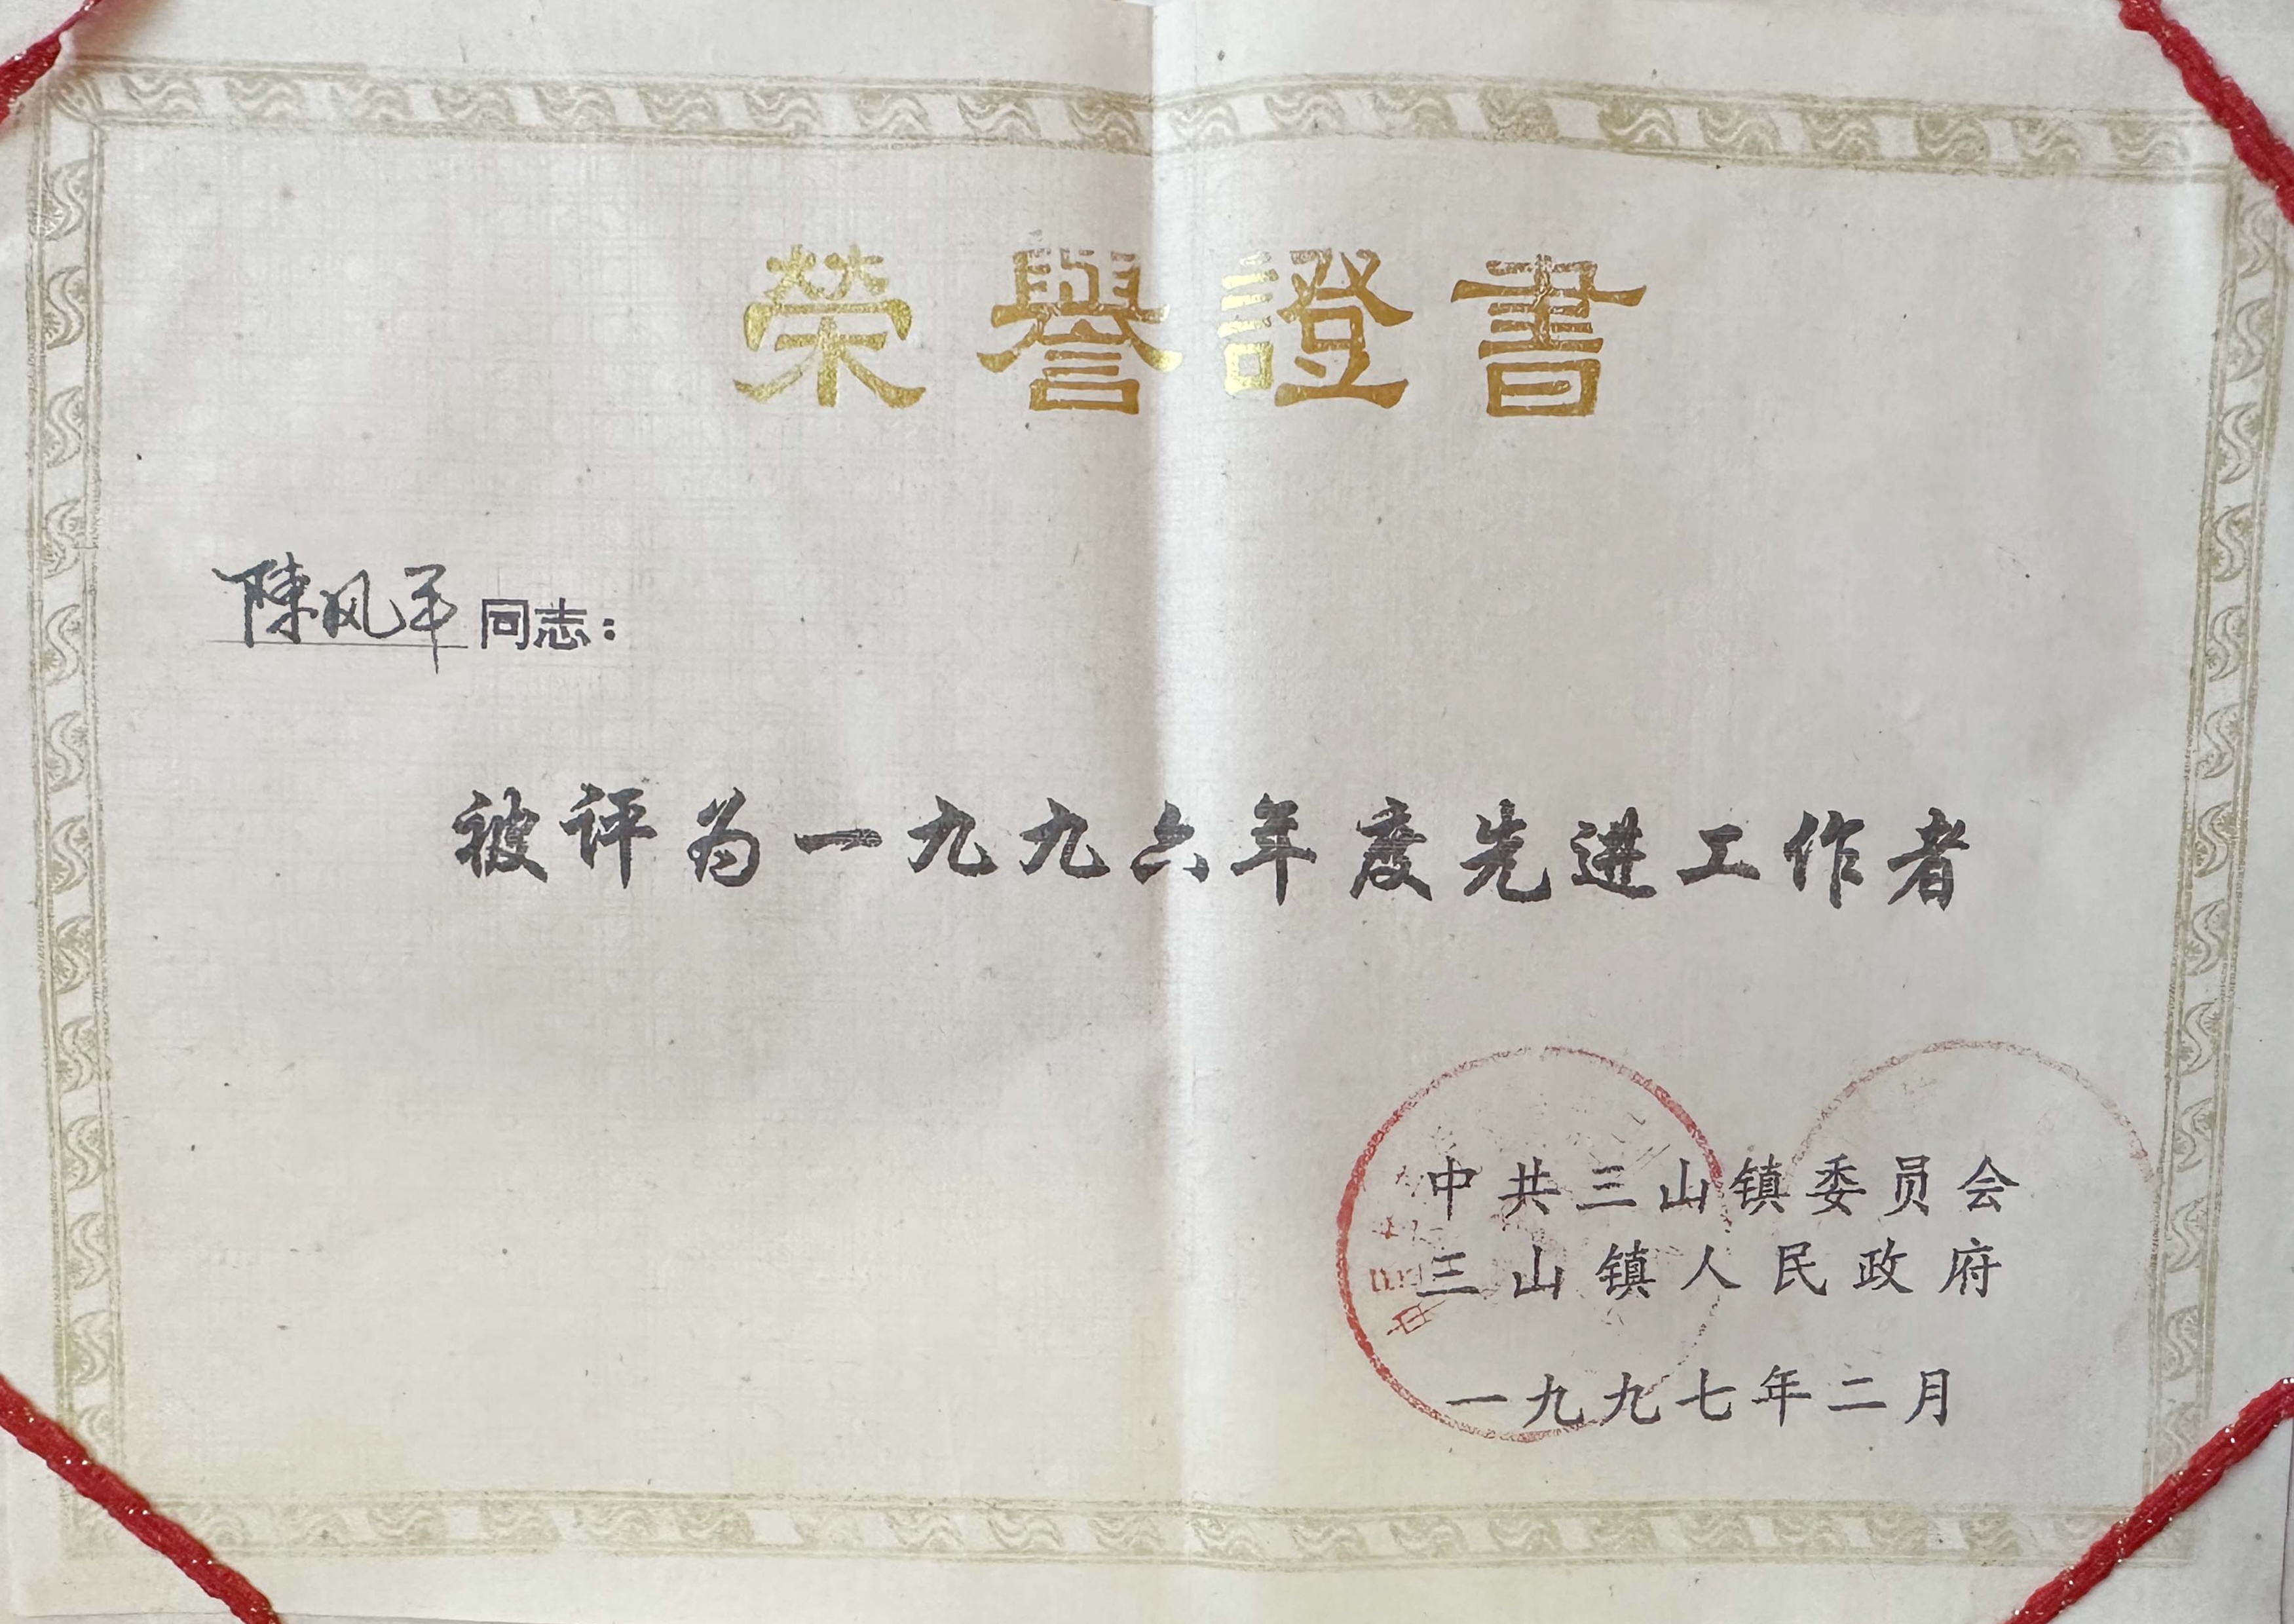 榮譽證書
陳风平同志：
被评为一九九六年度先进工作者
中共三山镇委员会
三山镇人民政府
一九九七年二月